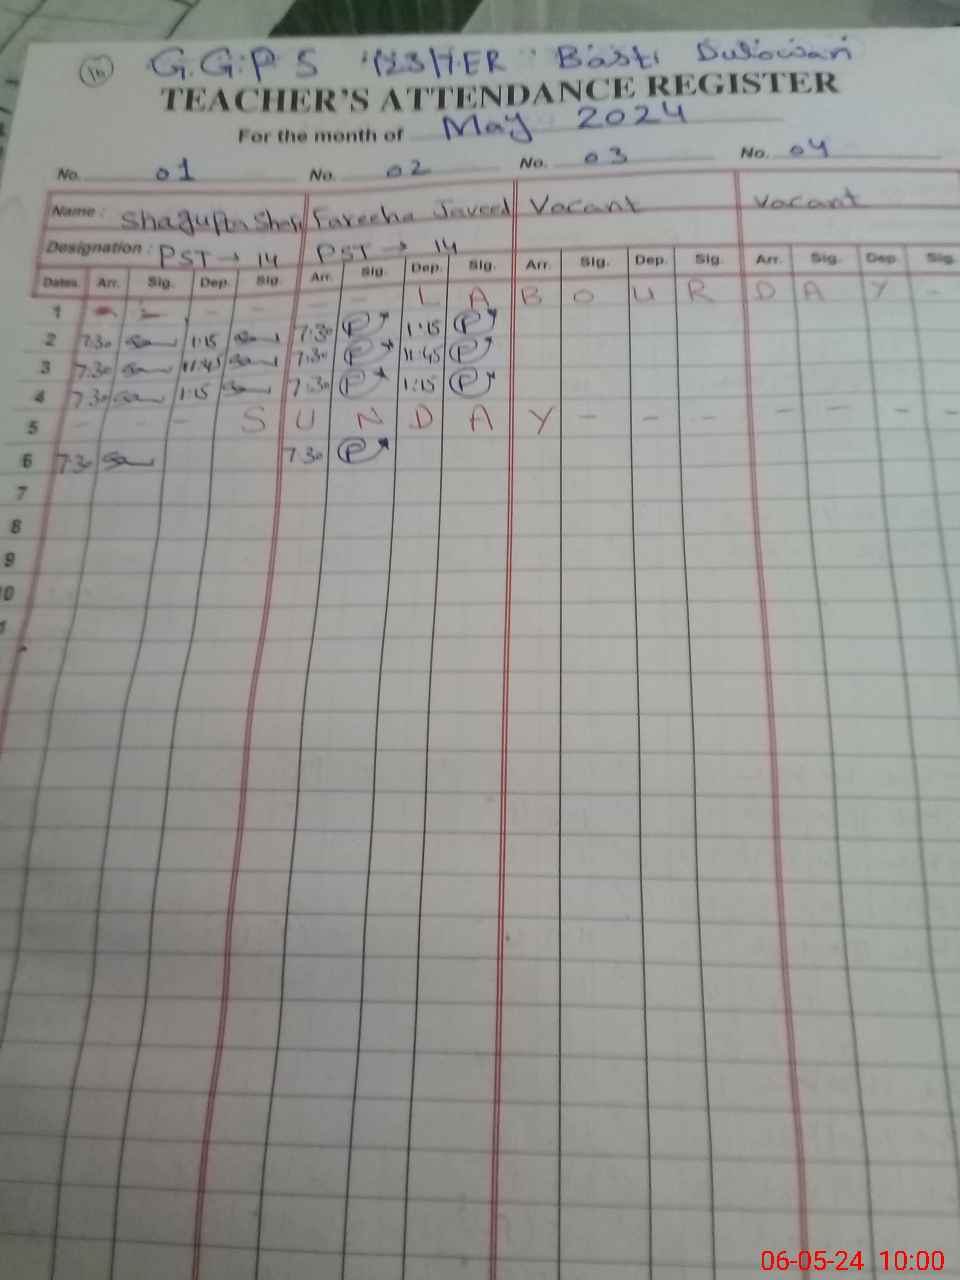 16 G.G.P S 123/7ER Basti
TEACHER'S ATTENDANCE REGISTER
For the month of May 2024
No. 01 No. 02 No. 03 No. 04
Name: Shagufta Fareeha Javeed Vacant Vacant
Designation: PST → 14 PST → 14
Dates. Arr. Sig. Dep. Sig. Arr. Sig. Dep. Sig. Arr. Sig. Dep. Sig. Arr. Sig. Dep. Sig.
1 - - - - - L A B O U R D A Y -
2 7:30 1:15 7:30 P 1:15 P
3 7:30 11:45 7:30 P 11:45 P
4 7:30 1:15 7:30 P 1:15 P
5 - - - S U N D A Y - - - - - - -
6 7:30 7:30 P
7
8
9
10
06-05-24 10:00